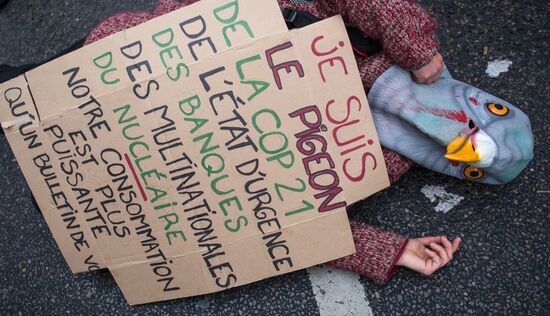 JE SUIS
LE PIGEON
DE LA COP 21
DE L'ÉTAT D'URGENCE
DES BANQUES
DES MULTINATIONALES
DU NUCLÉAIRE
NOTRE CONSOMMATION
EST PLUS
PUISSANTE
QU'UN BULLETIN DE